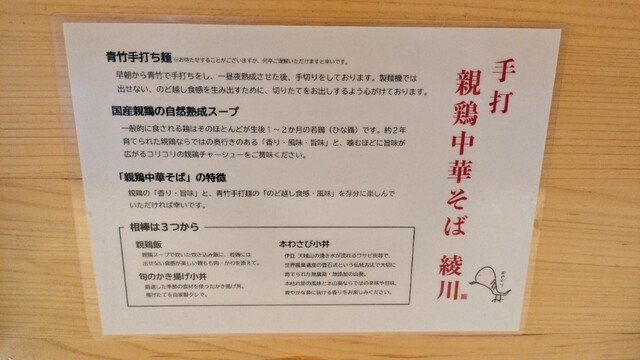 手打
親鶏中華そば 綾川
青竹手打ち麺 ※お待たせすることがございますが、何卒ご理解いただけますと幸いです。
早朝から青竹で手打ちをし、一昼夜熟成させた後、手切りをしております。製麺機では
出せない、のど越し食感を生み出すために、切りたてをお出しするよう心がけております。
国産親鶏の自然熟成スープ
一般的に食される鶏はそのほとんどが生後１～２か月の若鶏（ひな鶏）です。約２年
育てられた親鶏ならではの奥行きのある「香り・風味・旨味」と、噛むほどに旨味が
広がるコリコリの親鶏チャーシューをご賞味ください。
「親鶏中華そば」の特徴
親鶏の「香り・旨味」と、青竹手打麺の「のど越し食感・風味」を存分に楽しんで
いただければ幸いです。
相棒は３つから
親鶏飯
親鶏スープで炊いた炊き込み飯に、若鶏には
出せない食感が楽しい鶏もも肉・かわを添えて。
旬のかき揚げ小丼
厳選した季節の食材を使ったかき揚げ丼。
揚げたてを自家製タレで。
本わさび小丼
伊豆 天城山の湧き水が流れるワサビ沢等で、
世界農業遺産の畳石式という伝統方法で大切に
育てられた無農薬・無添加の山葵。
本枯れ節の風味と本山葵ならではの辛味や甘味、
爽やかな鼻に抜ける香りをお楽しみください。